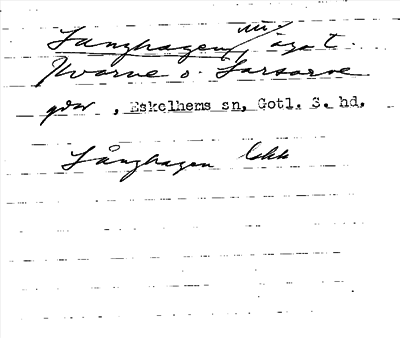 Langhagen, äga t.
Kvarne o. Larsarve
gdar, Eskelhems sn, Gotl. S. hd.
Långhagen Ekk